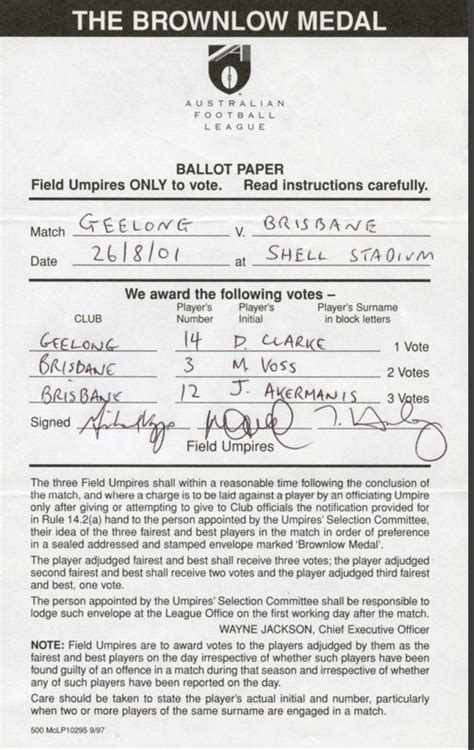 THE BROWNLOW MEDAL
AUSTRALIAN
FOOTBALL
LEAGUE
BALLOT PAPER
Field Umpires ONLY to vote. Read instructions carefully.
Match GEELONG V. BRISBANE
Date 26/8/01 at SHELL STADIUM
We award the following votes –
CLUB Player's Number Player's Initial Player's Surname in block letters
GEELONG 14 D. CLARKE 1 Vote
BRISBANE 3 M. VOSS 2 Votes
BRISBANE 12 J. AKERMANIS 3 Votes
Signed
Field Umpires
The three Field Umpires shall within a reasonable time following the conclusion of
the match, and where a charge is to be laid against a player by an officiating Umpire
only after giving or attempting to give to Club officials the notification provided for
in Rule 14.2(a) hand to the person appointed by the Umpires' Selection Committee,
their idea of the three fairest and best players in the match in order of preference
in a sealed addressed and stamped envelope marked 'Brownlow Medal'.
The player adjudged fairest and best shall receive three votes; the player adjudged
second fairest and best shall receive two votes and the player adjudged third fairest
and best, one vote.
The person appointed by the Umpires' Selection Committee shall be responsible to
lodge such envelope at the League Office on the first working day after the match.
WAYNE JACKSON, Chief Executive Officer
NOTE: Field Umpires are to award votes to the players adjudged by them as the
fairest and best players on the day irrespective of whether such players have been
found guilty of an offence in a match during that season and irrespective of whether
any of such players have been reported on the day.
Care should be taken to state the player's actual initial and number, particularly
when two or more players of the same surname are engaged in a match.
500 McLP10295 9/97